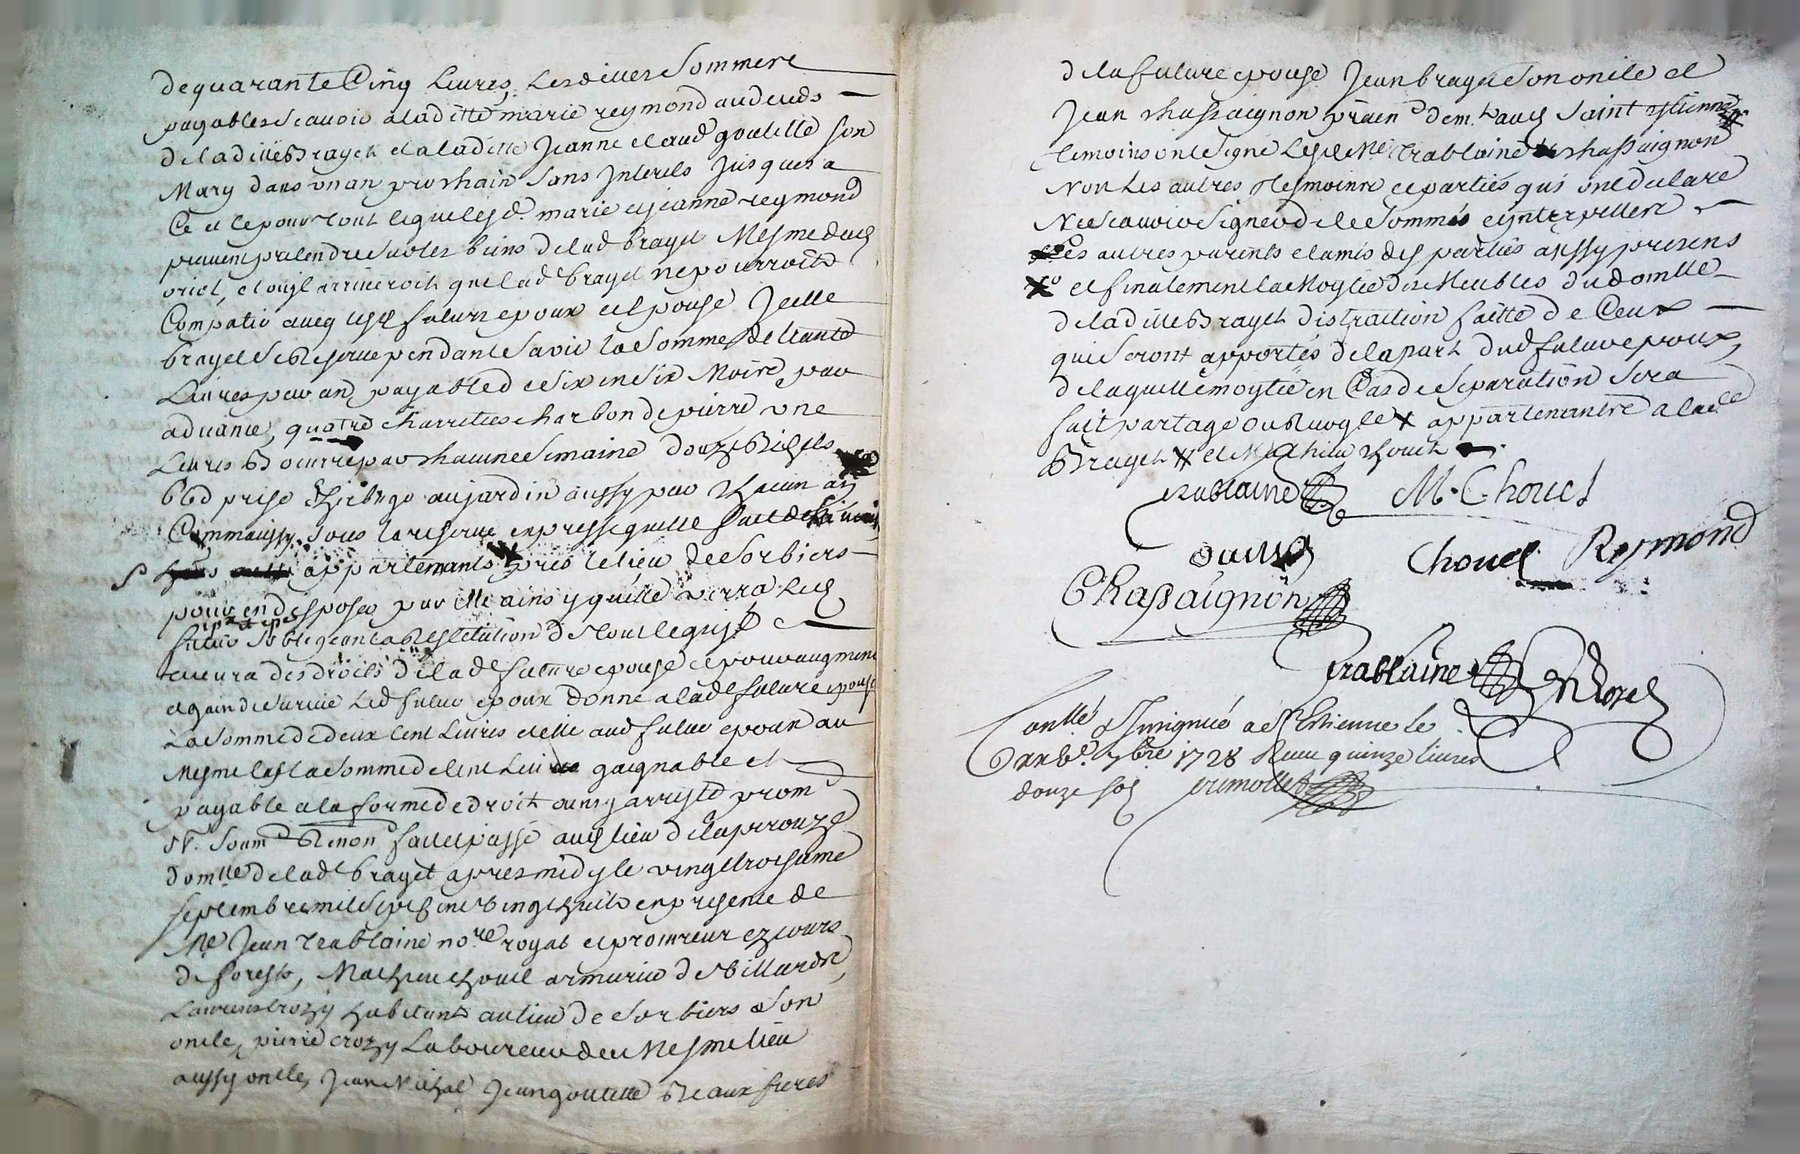 de quarante Cinq Livres, Lesdittes Sommes
payables scavoir a laditte marie reymond au deceds
de laditte Brayet et a laditte Jeanne et aud goutelle son
Mary dans un an prochain sans Interests Jusques a
Ce et le pour tout ce que lesd. marie et jeanne reymond
peuvent pretendre sur les biens de lad brayet Mesme dud
ou sil arriveroit que lad brayet ne pourroit
Compatir avecq lesd futurs epoux et epouse Icelle
brayet se Reserve pendant sa vie la somme de trante
Livres par an payable de six en six Mois par
advance, quatre charretées charbon de pierre une
Livres Beurre par chacune semaine douze Bichets
bled prise au jardin aussy par chacun an
Comm'aussy sous la reserve expresse quelle fait
appartenants pres le lieu de Sorbiers
pour en disposer par elle ainsy quelle verra Led
futur s'obligeant a la Restitution de tout ce quil
aura des droits de lad future epouse et pour augment
et gain de survie Led futur epoux donne a lad future epouse
La somme de deux cent Livres et elle aud futur epoux au
Mesme cas la somme de cent Livres gaignable et
payable a la forme de droit ainsy arresté prom
Soum Renon fait et passé aud lieu de laperouze
domlle de lad brayet apres midy le vingt troisieme
septembre mil sept cent vingt huit en presence de
Me Jean trablaine nore royal et procureur ez cours
de forests, Mathieu chouel armurier de Villards,
Laurens crozy habitant au lieu de Sorbiers son
oncle, pierre crozy Laboureur de ce Mesme lieu
aussy oncle, Jean Jean goutelle Beaux freres
de la future epouse Jean brayet son oncle et
Jean chassaignon praen demt aud Saint estienne
temoins ont signé Lesd Me trablaine chassaignon
Non Les autres tesmoins et parties qui ont declaré
Ne scavoir signer de ce sommés et interpellés
Les autres parents et amis des parties aussy presens
et finalement la Moytié des Meubles du domlle
de laditte Brayet distraction faitte de Ceux
qui seront apportés de la part dud futur epoux,
de laquelle moytié en Cas de separation sera
fait partage appartenante a lade
Brayet et Mathieu chouel
trablaine M. Chouel
Chouel Reymond
Chassaignon
trablaine
Conllé & Insignué a St Estienne le
7bre 1728 Receu quinze livres
douze sols